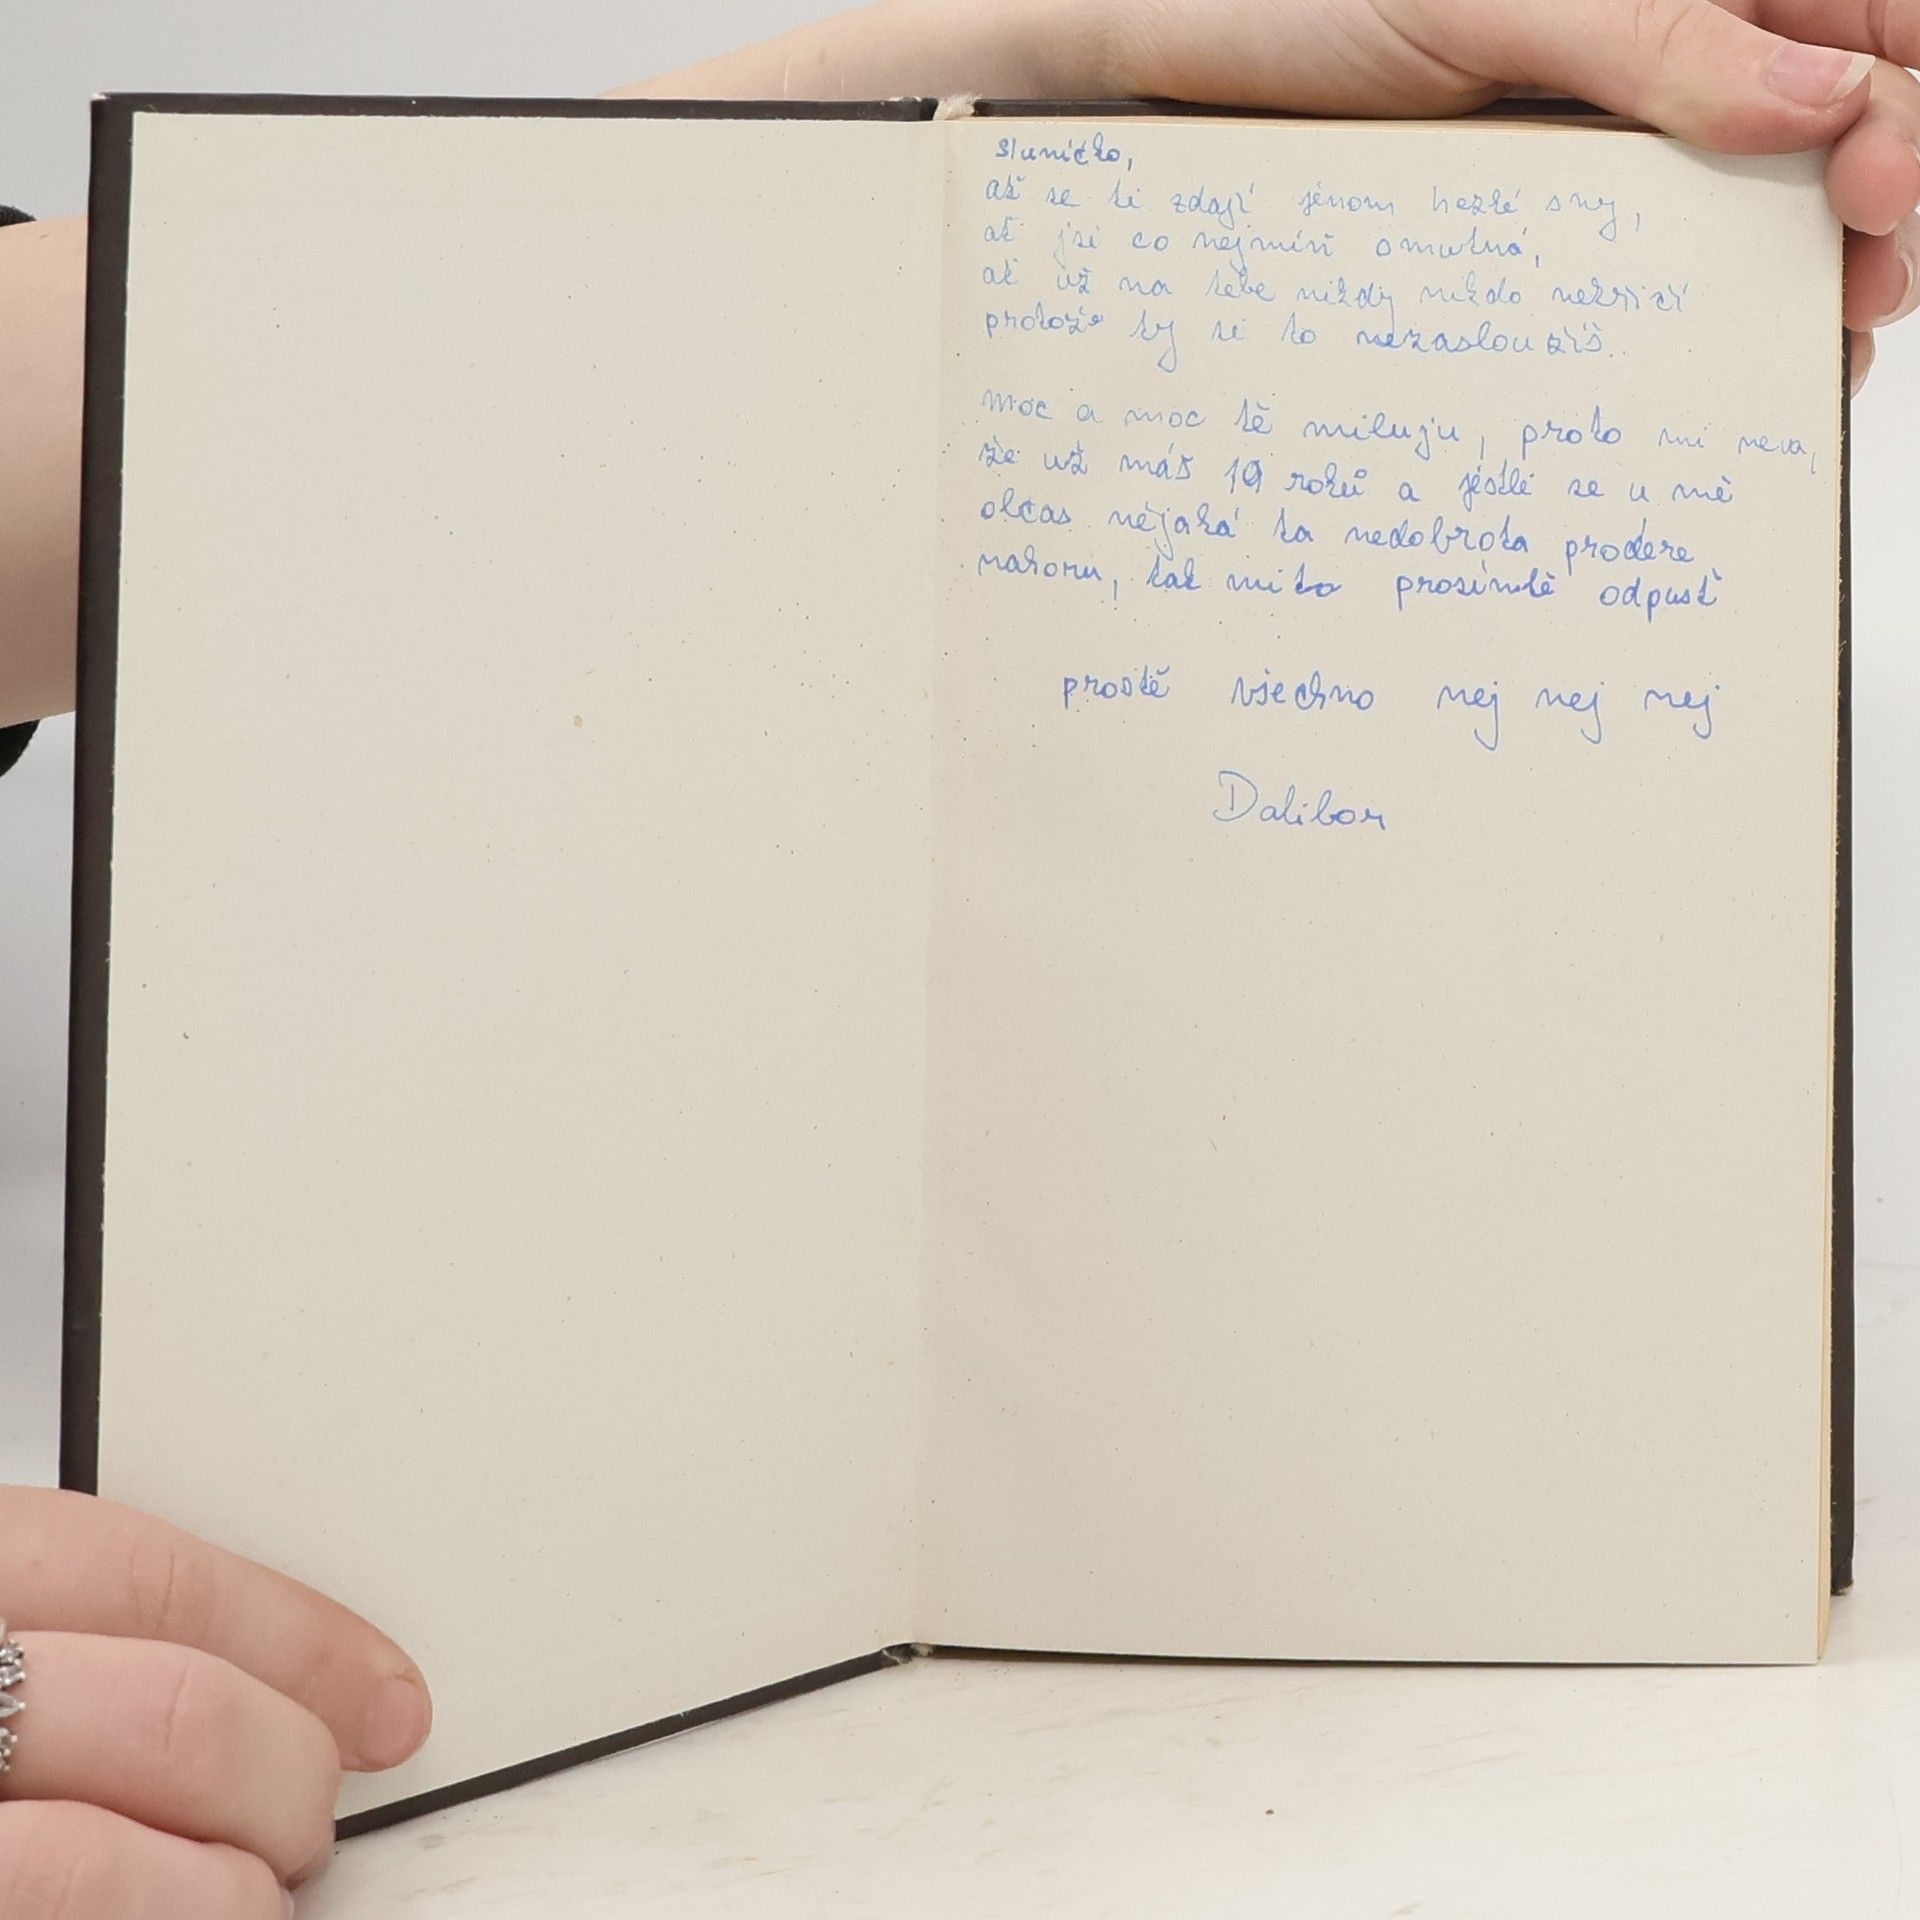 sluníčko,
ať se ti zdají jenom hezké sny,
ať jsi co nejmíň smutná,
ať už na tebe nikdy nikdo nekřičí
protože ty si to nezasloužíš.
moc a moc tě miluju, proto mi nevadí,
že už máš 19 roků a jestli se u mě
občas nějaká ta nedobrota prodere
nahoru, tak mi to prosímtě odpusť
prostě všechno nej nej nej
Dalibor